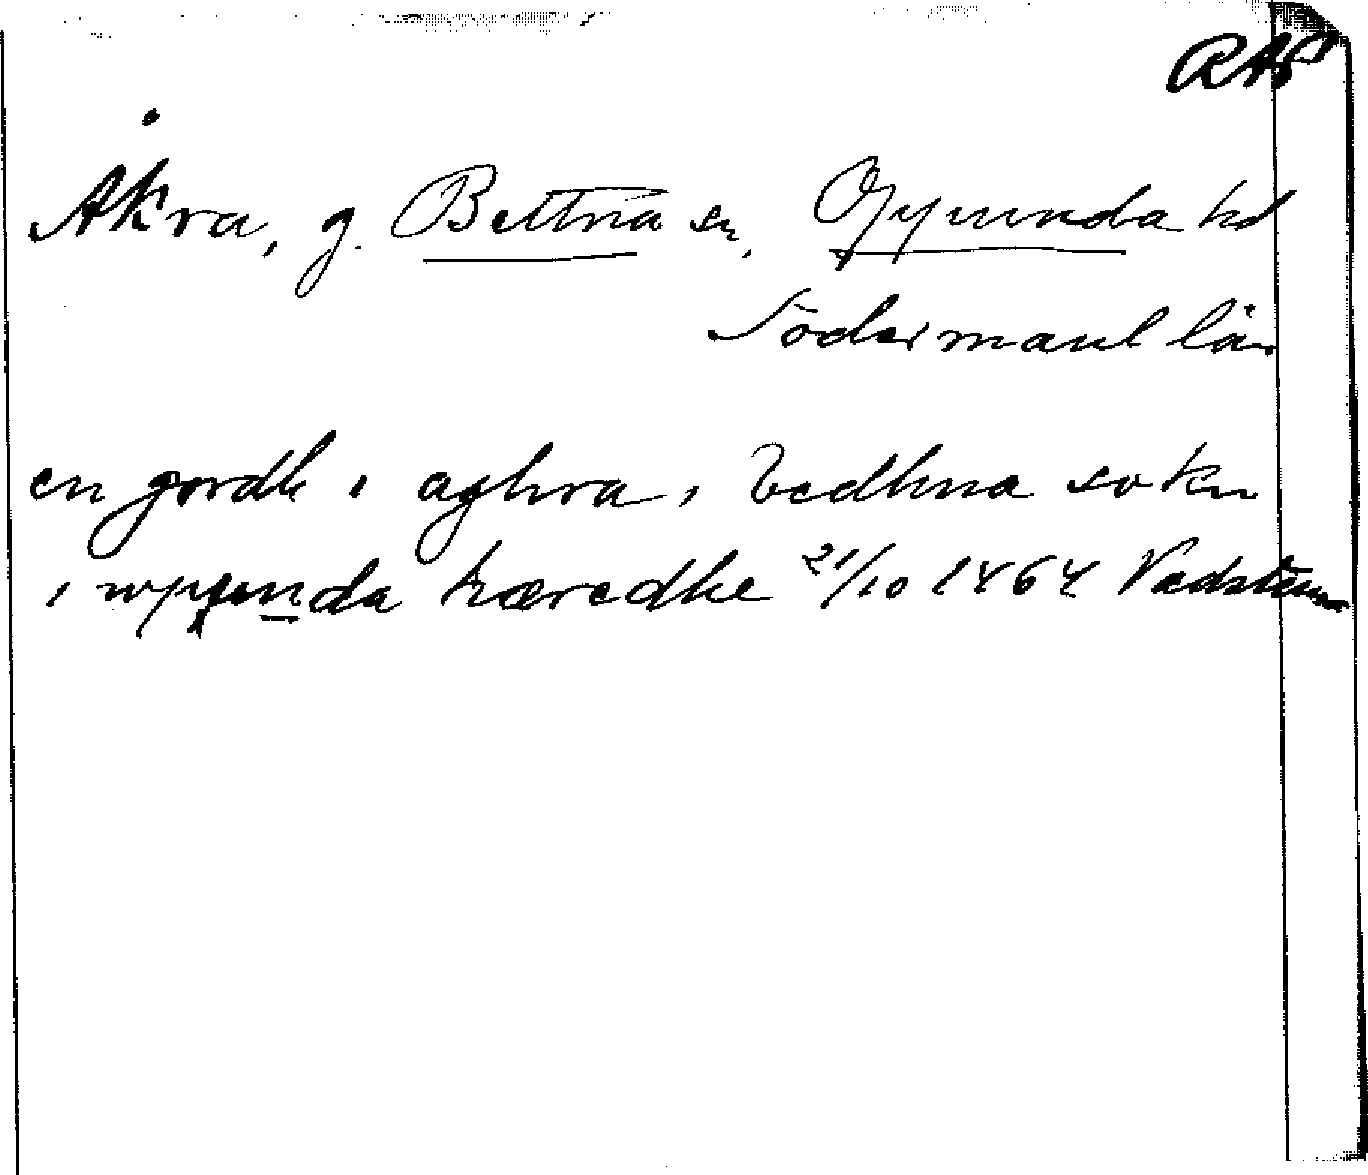 RAP
Åkra, g. Bettna sn, Oppunda hd
Södermanl län
en gordh i aghra i bedhna sokn
i wppunda hæredhe 21/10 1464 Vadstena